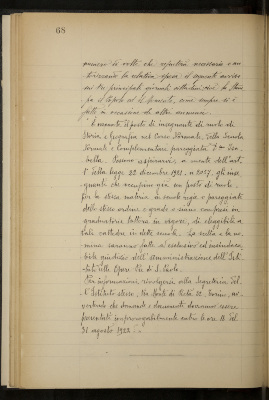 68
numero di volte che riputerà necessario e au-
torizzando la relativa spesa il seguente avviso
sui tre principali giornali cittadini cioè la Stam-
pa il Popolo ed il Momento, come sempre si è
fatto in occasione di altre nomine.
"È vacante il posto di insegnante di ruolo di
Storia e Geografia nel Corso Normale, della Scuola
Normale e Complementare pareggiata "P.ssa Isa-
bella. Possono aspirarvi, a mente dell'art.
1° della legge 22 dicembre 1921, n. 2027, gli inse-
gnanti che occupino già un posto di ruolo
per la stessa materia, in scuola regia o pareggiata
dello stesso ordine e grado o siano compresi in
graduatoria tuttora in vigore, di eleggibili a
tali cattedre in dette scuole. La scelta e la no-
mina saranno fatte ad esclusivo ed insindaca-
bile giudizio dell'Amministrazione dell'Isti-
tuto delle Opere Pie di S. Paolo.
Per informazioni rivolgersi alla Segreteria del-
l'Istituto stesso, Via Monte di Pietà 32, Torino, av-
vertendo che domande e documenti dovranno essere
presentati improrogabilmente entro le ore 18 del
31 agosto 1922".